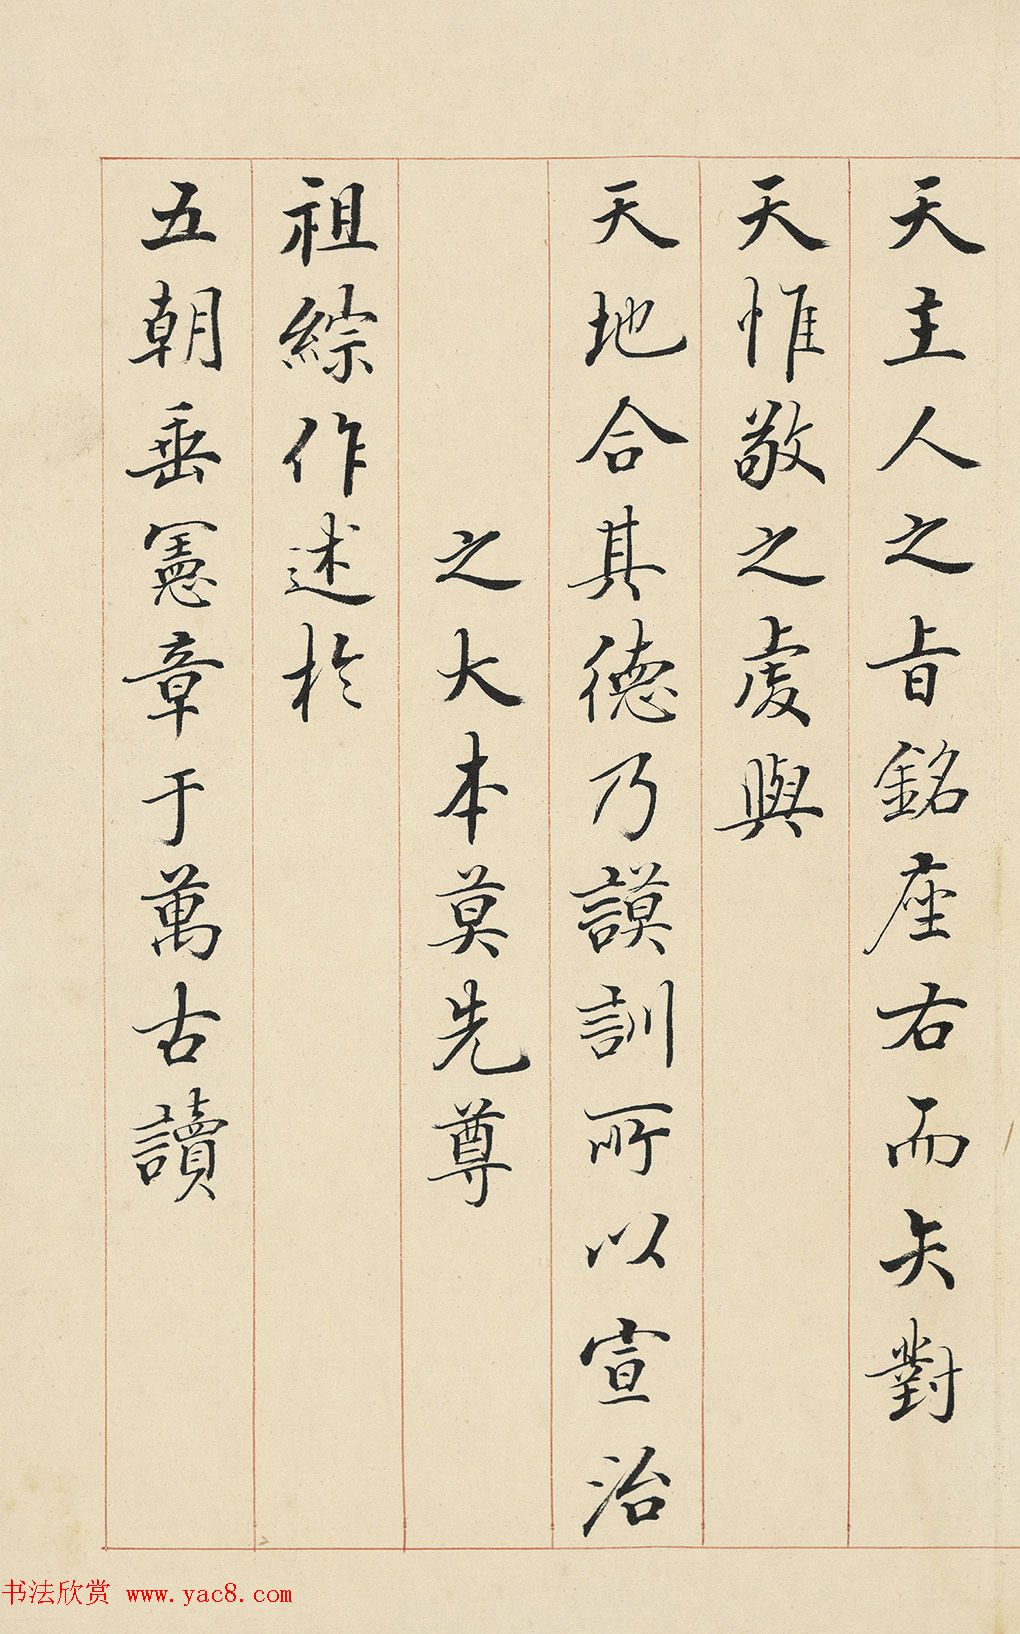 天主人之旨銘座右而矢對
天惟敬之處與
天地合其德乃謨訓所以宣治
之大本莫先尊
祖綜作述於
五朝垂憲章于萬古讀
书法欣赏 www.yac8.com